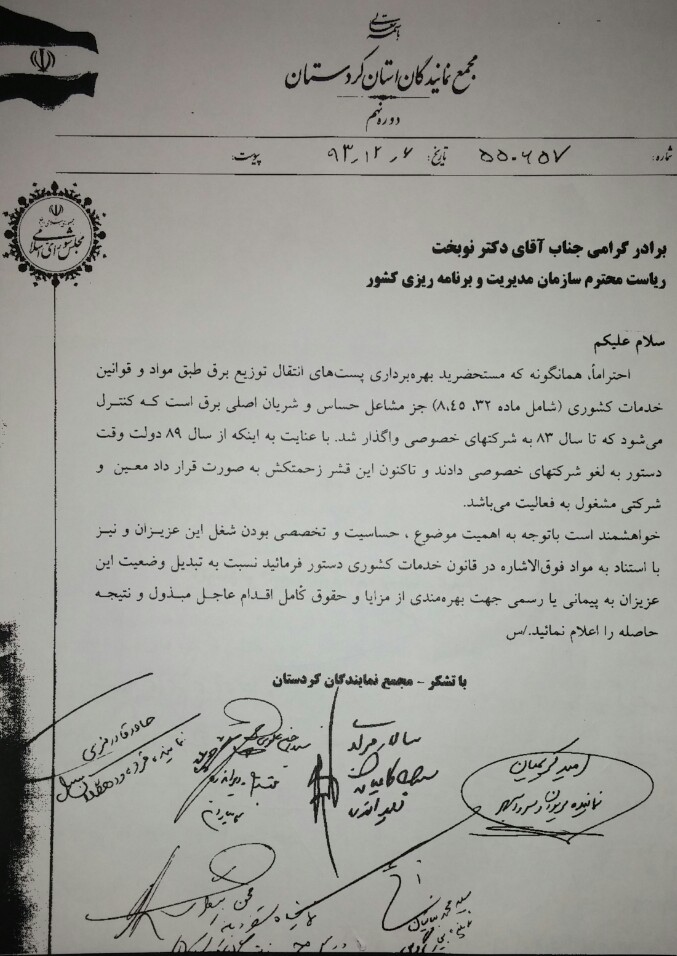 بسمه تعالی
مجمع نمایندگان استان کردستان
دوره نهم
شماره: ۵۵۰۶۵۷ تاریخ: ۹۳٫۱۲٫۶ پیوست:
جمهوری اسلامی ایران
مجلس شورای اسلامی
برادر گرامی جناب آقای دکتر نوبخت
ریاست محترم سازمان مدیریت و برنامه ریزی کشور
سلام علیکم
احتراماً، همانگونه که مستحضرید بهره‌برداری پست‌های انتقال توزیع برق طبق مواد و قوانین
خدمات کشوری (شامل ماده ۳۲، ۸،۴۵) جز مشاغل حساس و شریان اصلی برق است که کنترل
می‌شود که تا سال ۸۳ به شرکتهای خصوصی واگذار شد. با عنایت به اینکه از سال ۸۹ دولت وقت
دستور به لغو شرکتهای خصوصی دادند و تاکنون این قشر زحمتکش به صورت قرار داد معین و
شرکتی مشغول به فعالیت می‌باشد.
خواهشمند است باتوجه به اهمیت موضوع ، حساسیت و تخصصی بودن شغل این عزیزان و نیز
با استناد به مواد فوق‌الاشاره در قانون خدمات کشوری دستور فرمائید نسبت به تبدیل وضعیت این
عزیزان به پیمانی یا رسمی جهت بهره‌مندی از مزایا و حقوق کامل اقدام عاجل مبذول و نتیجه
حاصله را اعلام نمائید./س
با تشکر - مجمع نمایندگان کردستان
امید کریمیان
نماینده مریوان و سروآباد
سالار مرادی
حامد قادرمرزی
نماینده قروه و دهگلان
محسن بیگلری